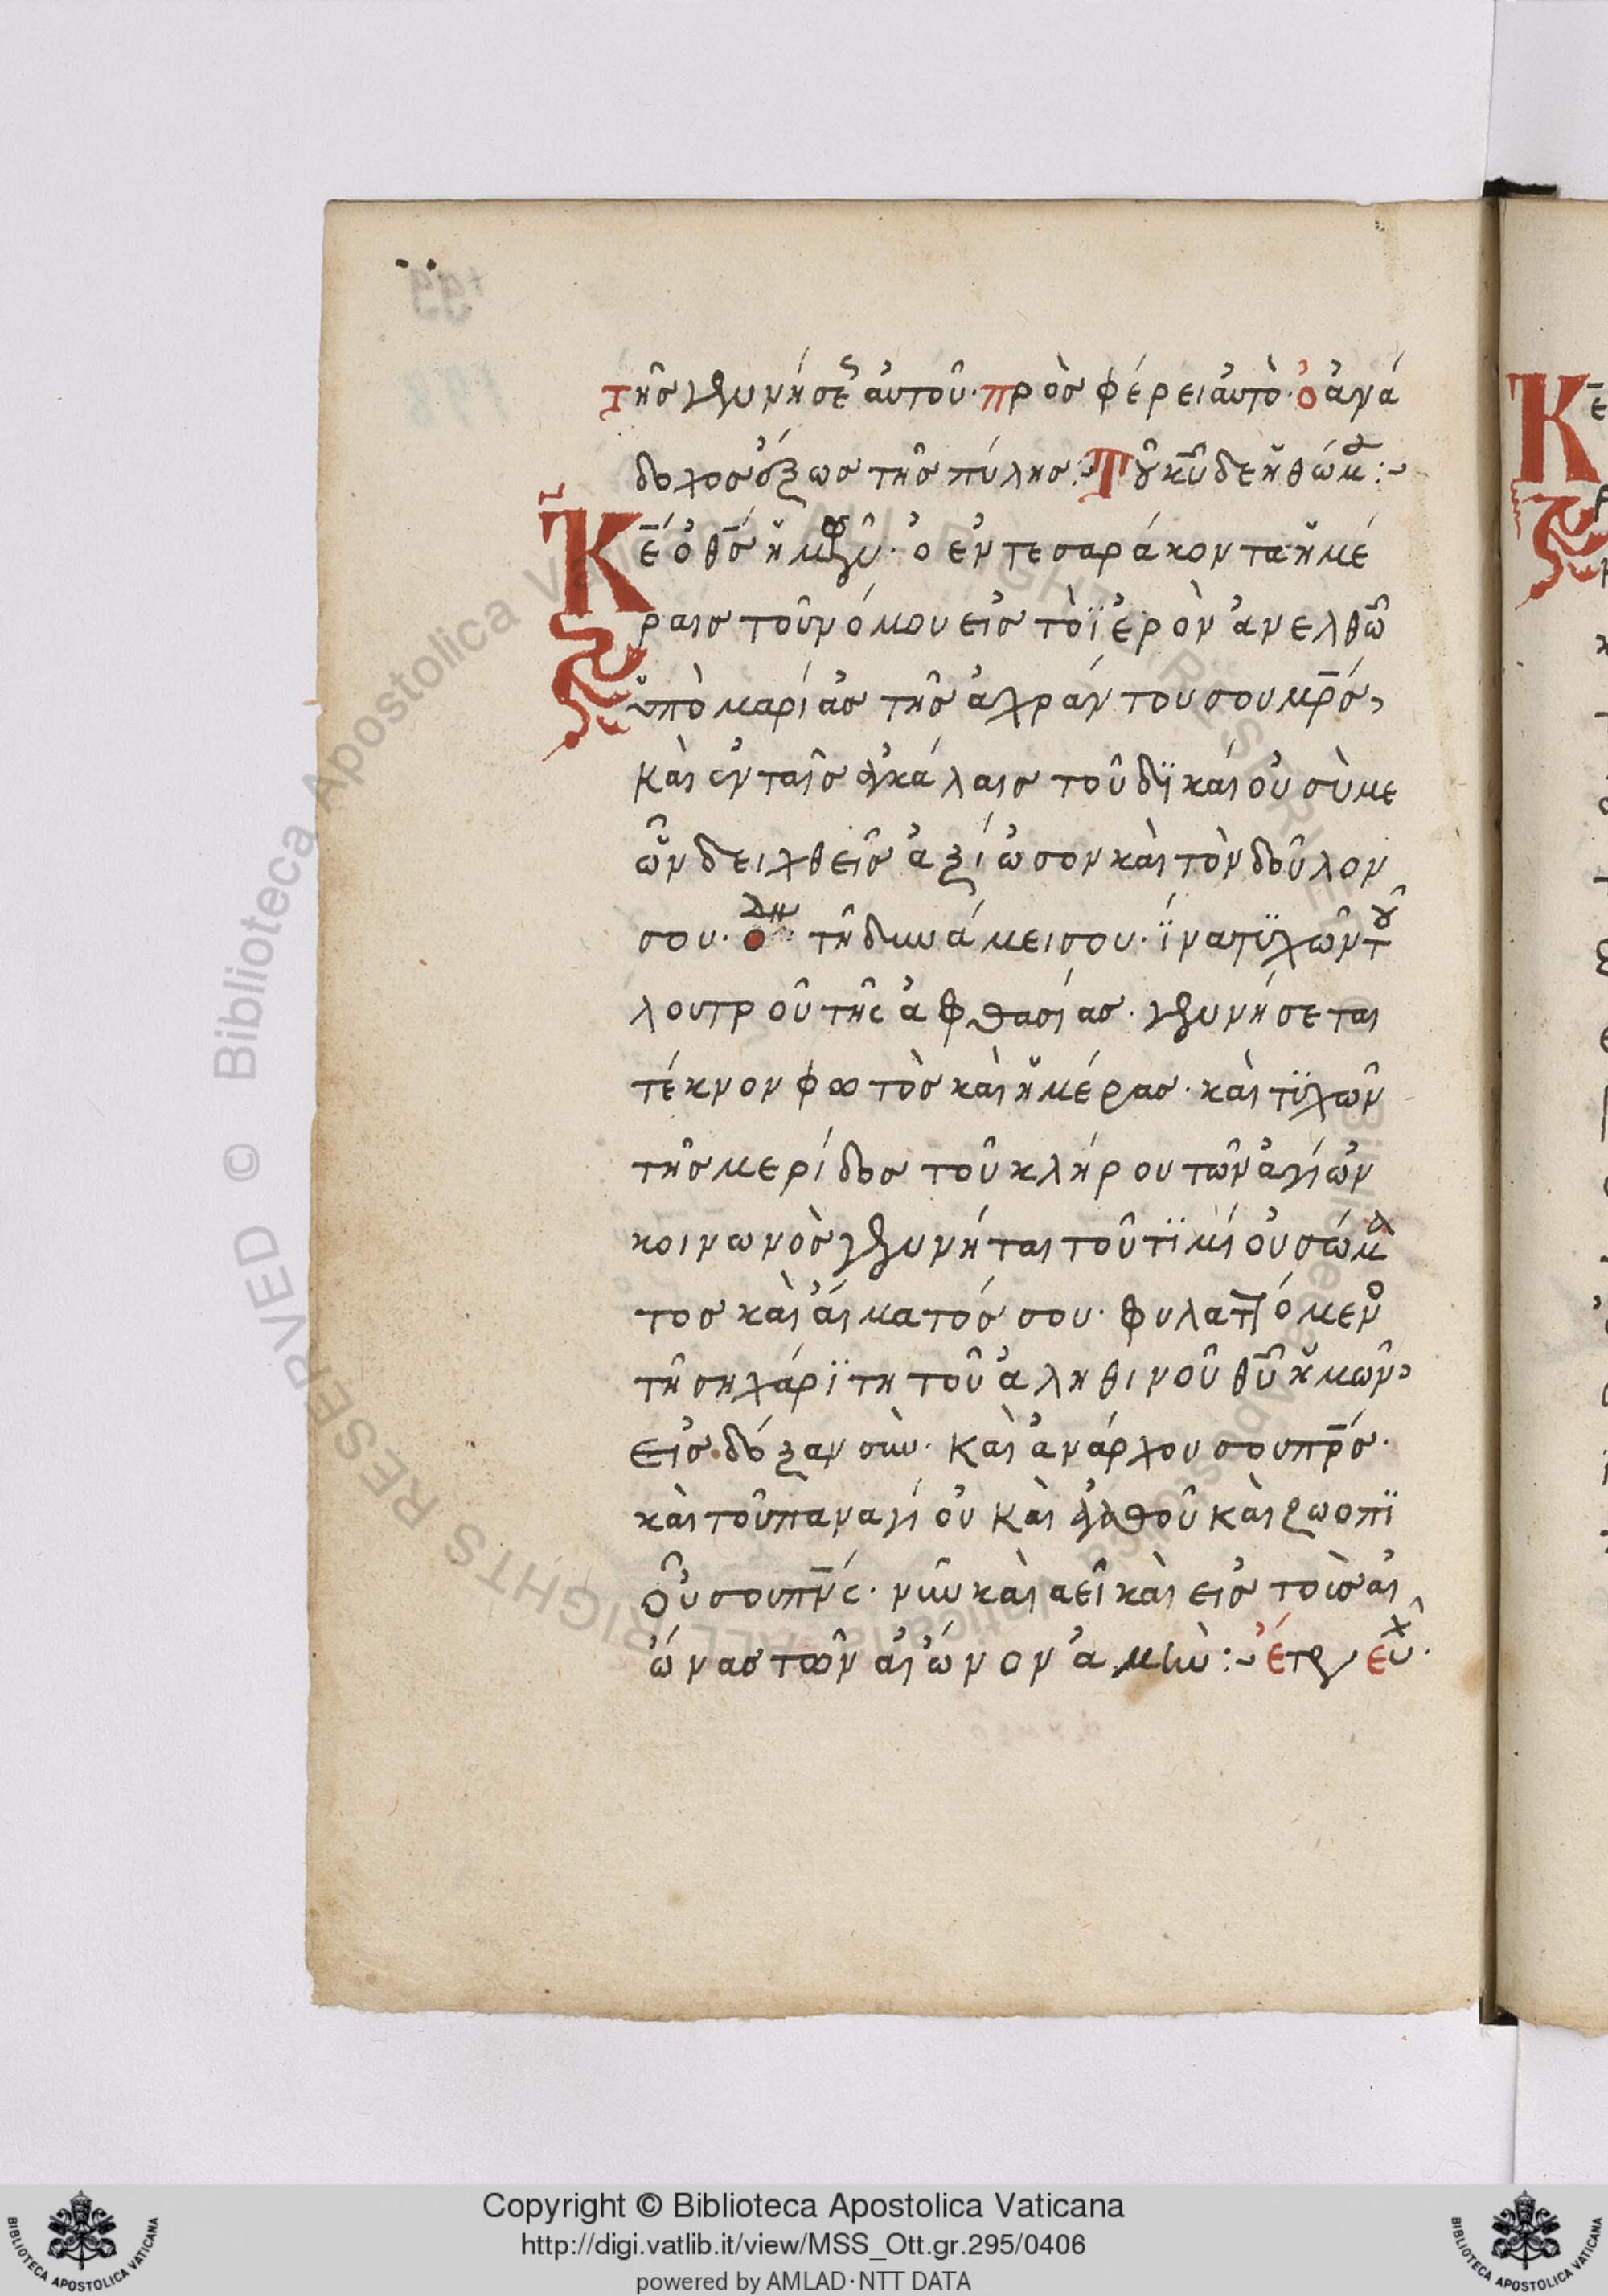 τῆς γεννήσε αὐτοῦ· πρὸς φέρει αὐτὸ· ὁ ἀνά
δοχος ἔξως τῆς πύλης :~ Τοῦ κῦ δεηθώμ :~
Κε ὁ θς ἡμῶν· ὁ ἐν τεσαράκοντα ἡμέ
ραις τοῦ νόμου εἰς τὸ ϊερὸν ἀνελθῶ
ὑπὸ μαρίας τῆς ἀχράντου σου μρς,
καὶ ἐν ταῖς ἀγκάλαις τοῦ δϊκαίου σὺμε
ῶν δειχθεῖς ἀξίωσον καὶ τὸν δοῦλον
σου· ὁδη τῆ δυνάμει σου· ἵνα τϋχῶν τοῦ
λουτροῦ τῆς ἀφθασίας· γεννήσεται
τέκνον φωτὸς καὶ ἡμέρας· καὶ τϋχῶν
τῆς μερίδος τοῦ κλήρου τῶν ἁγίων
κοινωνὸς γεννήται τοῦ τϊμίου σώμα
τος καὶ αἵματός σου· φυλαττόμενο
τῆ ση χάρϊτη τοῦ ἀληθινοῦ θῦ ἡμῶν,
εἰς δόξαν σὴν· καὶ ἀνάρχου σου πρς·
καὶ τοῦ παναγίου καὶ ἀγαθοῦ καὶ ζωοπϊ
οῦ σου πνς· νῦν καὶ αεῖ καὶ εις τοὺς αἰ
ώνας τῶν αἰώνον ἀμὴν :~ ἑτέρ εὐχ·
Copyright © Biblioteca Apostolica Vaticana
http://digi.vatlib.it/view/MSS_Ott.gr.295/0406
powered by AMLAD·NTT DATA